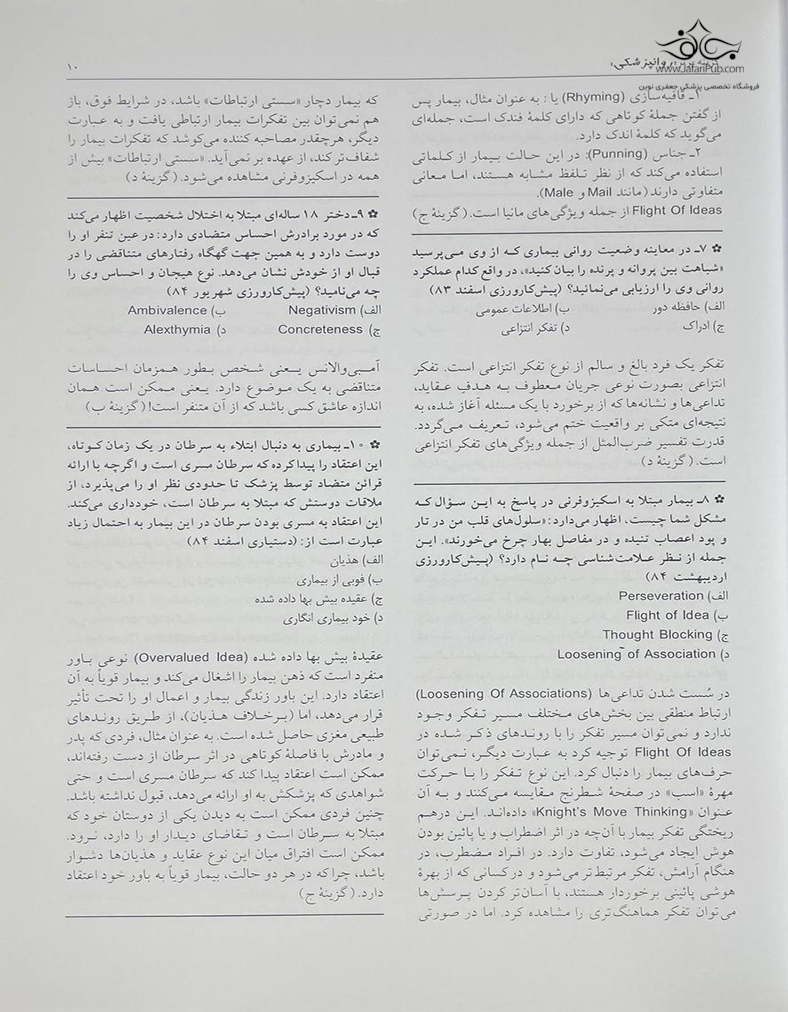 ۱۰
گزینه برتر روانپزشکی
www.JafariPub.com
فروشگاه تخصصی پزشکی جعفری نوین
۱ـ قافیه‌سازی (Rhyming) یا : به عنوان مثال، بیمار پس
از گفتن جملهٔ کوتاهی که دارای کلمهٔ فندک است، جمله‌ای
می‌گوید که کلمهٔ اندک دارد.
۲ـ جناس (Punning): در این حالت بیمار از کلماتی
استفاده می‌کند که از نظر تلفظ مشابه هستند، اما معانی
متفاوتی دارند (مانند Mail و Male).
Flight Of Ideas از جمله ویژگی‌های مانیا است. (گزینهٔ ج)
✿ ۷ـ در معاینه وضعیت روانی بیماری که از وی می‌پرسید
«شباهت بین پروانه و پرنده را بیان کنید»، در واقع کدام عملکرد
روانی وی را ارزیابی می‌نمائید؟ (پیش‌کارورزی اسفند ۸۳)
الف) حافظه دور ب) اطلاعات عمومی
ج) ادراک د) تفکر انتزاعی
تفکر یک فرد بالغ و سالم از نوع تفکر انتزاعی است. تفکر
انتزاعی بصورت نوعی جریان معطوف به هدفِ عقاید،
تداعی‌ها و نشانه‌ها که از برخورد با یک مسئله آغاز شده، به
نتیجه‌ای متکی بر واقعیت ختم می‌شود، تعریف می‌گردد.
قدرت تفسیر ضرب‌المثل از جمله ویژگی‌های تفکر انتزاعی
است. (گزینهٔ د)
✿ ۸ـ بیمار مبتلا به اسکیزوفرنی در پاسخ به این سؤال که
مشکل شما چیست، اظهار می‌دارد: «سلول‌های قلب من در تار
و پود اعصاب تنیده و در مفاصل بهار چرخ می‌خورند». این
جمله از نظر علامت‌شناسی چه نام دارد؟ (پیش‌کارورزی
اردیبهشت ۸۴)
الف) Perseveration
ب) Flight of Idea
ج) Thought Blocking
د) Loosening of Association
در سُست شدن تداعی‌ها (Loosening Of Associations)
ارتباط منطقی بین بخش‌های مختلف مسیر تفکر وجود
ندارد و نمی‌توان مسیر تفکر را با روندهای ذکر شده در
Flight Of Ideas توجیه کرد به عبارت دیگر، نمی‌توان
حرف‌های بیمار را دنبال کرد. این نوع تفکر را با حرکت
مهرهٔ «اسب» در صفحهٔ شطرنج مقایسه می‌کنند و به آن
عنوان «Knight's Move Thinking» داده‌اند. این درهم
ریختگی تفکر بیمار با آن‌چه در اثر اضطراب و یا پائین بودن
هوش ایجاد می‌شود، تفاوت دارد. در افراد مضطرب، در
هنگام آرامش، تفکر مرتبط‌تر می‌شود و در کسانی که از بهرهٔ
هوشی پائینی برخوردار هستند، با آسان‌تر کردن پرسش‌ها
می‌توان تفکر هماهنگ‌تری را مشاهده کرد. اما در صورتی
که بیمار دچار «سستی ارتباطات» باشد، در شرایط فوق، باز
هم نمی‌توان بین تفکرات بیمار ارتباطی یافت و به عبارت
دیگر، هرچقدر مصاحبه کننده می‌کوشد که تفکرات بیمار را
شفاف‌تر کند، از عهده بر نمی‌آید. «سستی ارتباطات» بیش از
همه در اسکیزوفرنی مشاهده می‌شود. (گزینهٔ د)
✿ ۹ـ دختر ۱۸ ساله‌ای مبتلا به اختلال شخصیت اظهار می‌کند
که در مورد برادرش احساس متضادی دارد: در عین تنفر او را
دوست دارد و به همین جهت گهگاه رفتارهای متناقضی را در
قبال او از خودش نشان می‌دهد. نوع هیجان و احساس وی را
چه می‌نامید؟ (پیش‌کارورزی شهریور ۸۴)
الف) Negativism ب) Ambivalence
ج) Concreteness د) Alexthymia
آمبی‌والانس یعنی شخص بطور همزمان احساسات
متناقضی به یک موضوع دارد. یعنی ممکن است همان
اندازه عاشق کسی باشد که از آن متنفر است! (گزینهٔ ب)
✿ ۱۰ـ بیماری به دنبال ابتلاء به سرطان در یک زمان کوتاه،
این اعتقاد را پیدا کرده که سرطان مسری است و اگرچه با ارائه
قرائن متضاد توسط پزشک تا حدودی نظر او را می‌پذیرد، از
ملاقات دوستش که مبتلا به سرطان است، خودداری می‌کند.
این اعتقاد به مسری بودن سرطان در این بیمار به احتمال زیاد
عبارت است از: (دستیاری اسفند ۸۴)
الف) هذیان
ب) فوبی از بیماری
ج) عقیده بیش بها داده شده
د) خود بیماری انگاری
عقیدهٔ بیش بها داده شده (Overvalued Idea) نوعی باور
منفرد است که ذهن بیمار را اشغال می‌کند و بیمار قویاً به آن
اعتقاد دارد. این باور زندگی بیمار و اعمال او را تحت تأثیر
قرار می‌دهد، اما (برخلاف هذیان)، از طریق روندهای
طبیعی مغزی حاصل شده است. به عنوان مثال، فردی که پدر
و مادرش با فاصلهٔ کوتاهی در اثر سرطان از دست رفته‌اند،
ممکن است اعتقاد پیدا کند که سرطان مسری است و حتی
شواهدی که پزشکش به او ارائه می‌دهد، قبول نداشته باشد.
چنین فردی ممکن است به دیدن یکی از دوستان خود که
مبتلا به سرطان است و تقاضای دیدار او را دارد، نرود.
ممکن است افتراق میان این نوع عقاید و هذیان‌ها دشوار
باشد، چرا که در هر دو حالت، بیمار قویاً به باور خود اعتقاد
دارد. (گزینهٔ ج)